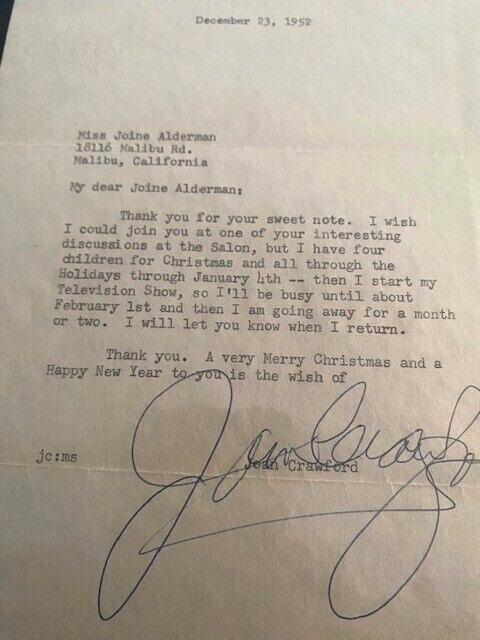 December 23, 1952
Miss Joine Alderman
18116 Malibu Rd.
Malibu, California
My dear Joine Alderman:
Thank you for your sweet note. I wish
I could join you at one of your interesting
discussions at the Salon, but I have four
children for Christmas and all through the
Holidays through January 4th -- then I start my
Television Show, so I'll be busy until about
February 1st and then I am going away for a month
or two. I will let you know when I return.
Thank you. A very Merry Christmas and a
Happy New Year to you is the wish of
Joan Crawford
jc:ms
Joan Crawford